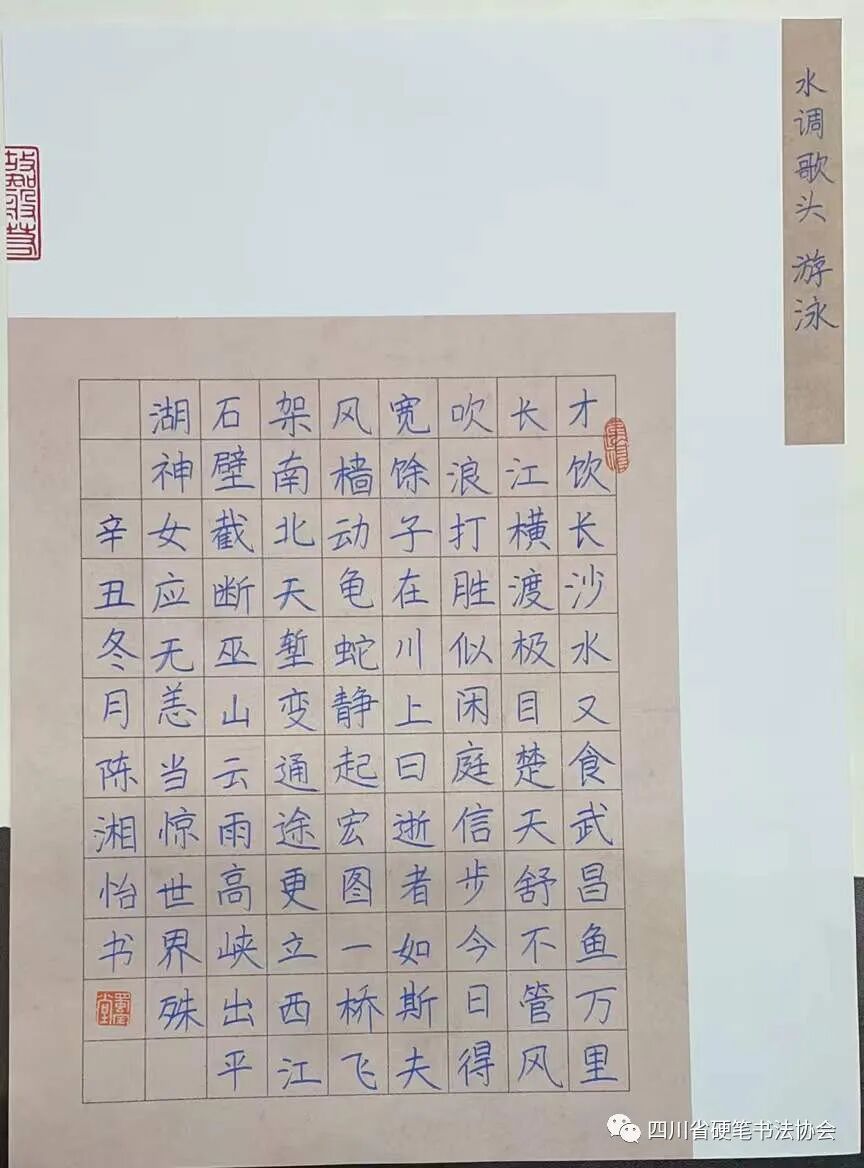 水调歌头 游泳
才饮长沙水又食武昌鱼万里
长江横渡极目楚天舒不管风
吹浪打胜似闲庭信步今日得
宽馀子在川上曰逝者如斯夫
风樯动龟蛇静起宏图一桥飞
架南北天堑变通途更立西江
石壁截断巫山云雨高峡出平
湖神女应无恙当惊世界殊
辛丑冬月陈湘怡书
四川省硬笔书法协会